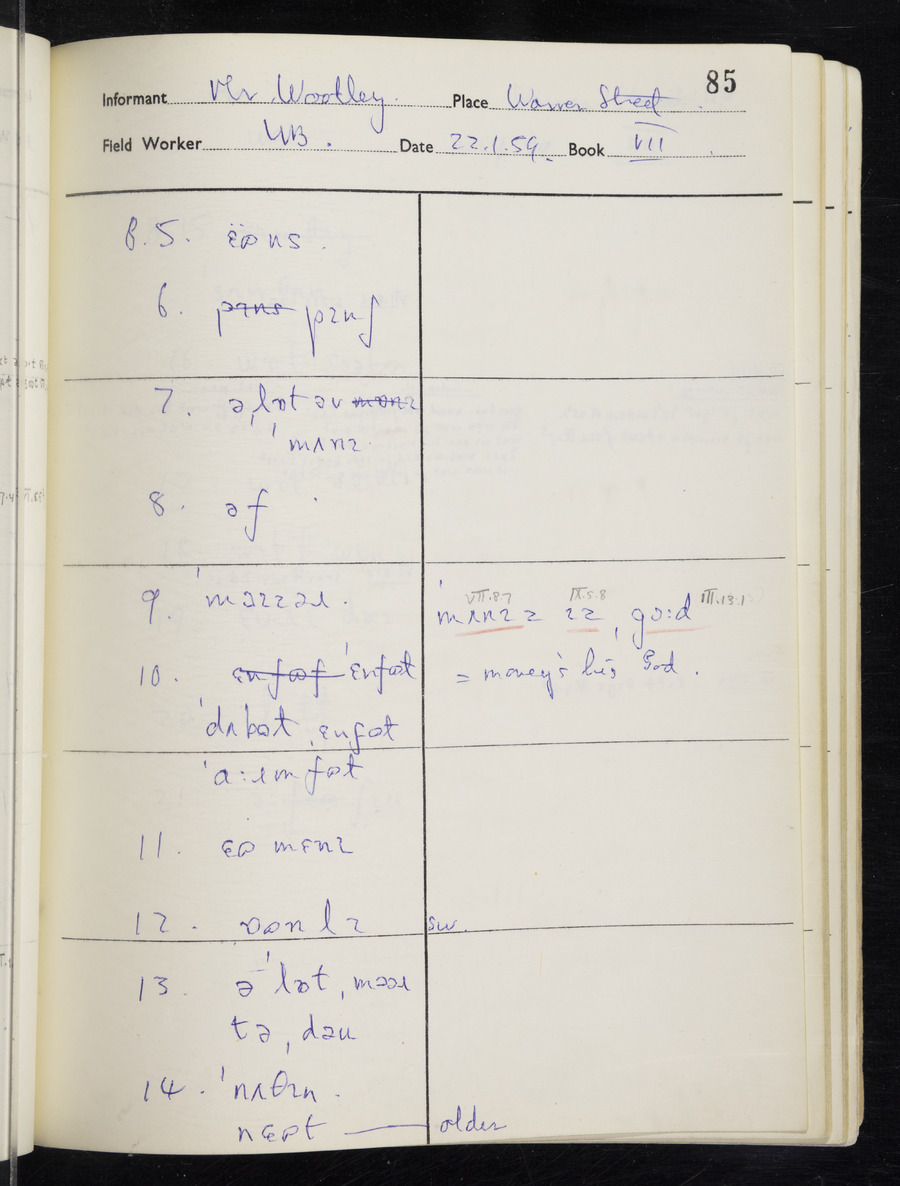 85
Informant Mr Wootley. Place Warren Street.
Field Worker WB. Date 22.1.59. Book VII.
8.5. ɛ̈əns.
6. pɪns pɪnʃ
7. əˌlɒt əv mɒnɪ
ˈmʌnɪ.
8. əf
9. ˈməzzəl.
VII.8.7 IX.5.8 III.13.1
ˈmʌnɪz ɪz, gɒːd
= money's his God.
10. ɛnfəʈ ˈɛnfət
ˈdʌbət, ɛnfət
ˈaːɪmfət
11. ɛə mɛnɪ
12. ɒənlɪ sw.
13. əˈlɒt, məəɪ
tə, dəu
14. ˈnʌθɪn.
nɛət — older